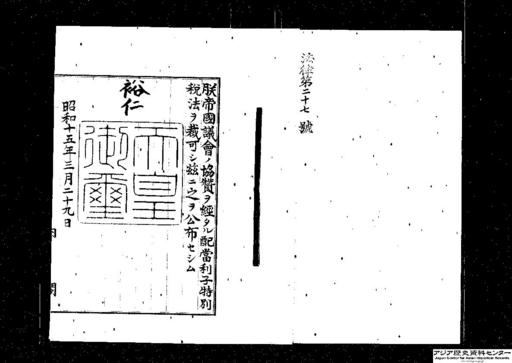 法律第二十七號
朕帝國議會ノ協贊ヲ經タル配當利子特別
稅法ヲ裁可シ玆ニ之ヲ公布セシム
裕仁
天皇
御璽
昭和十五年三月二十九日
アジア歴史資料センター